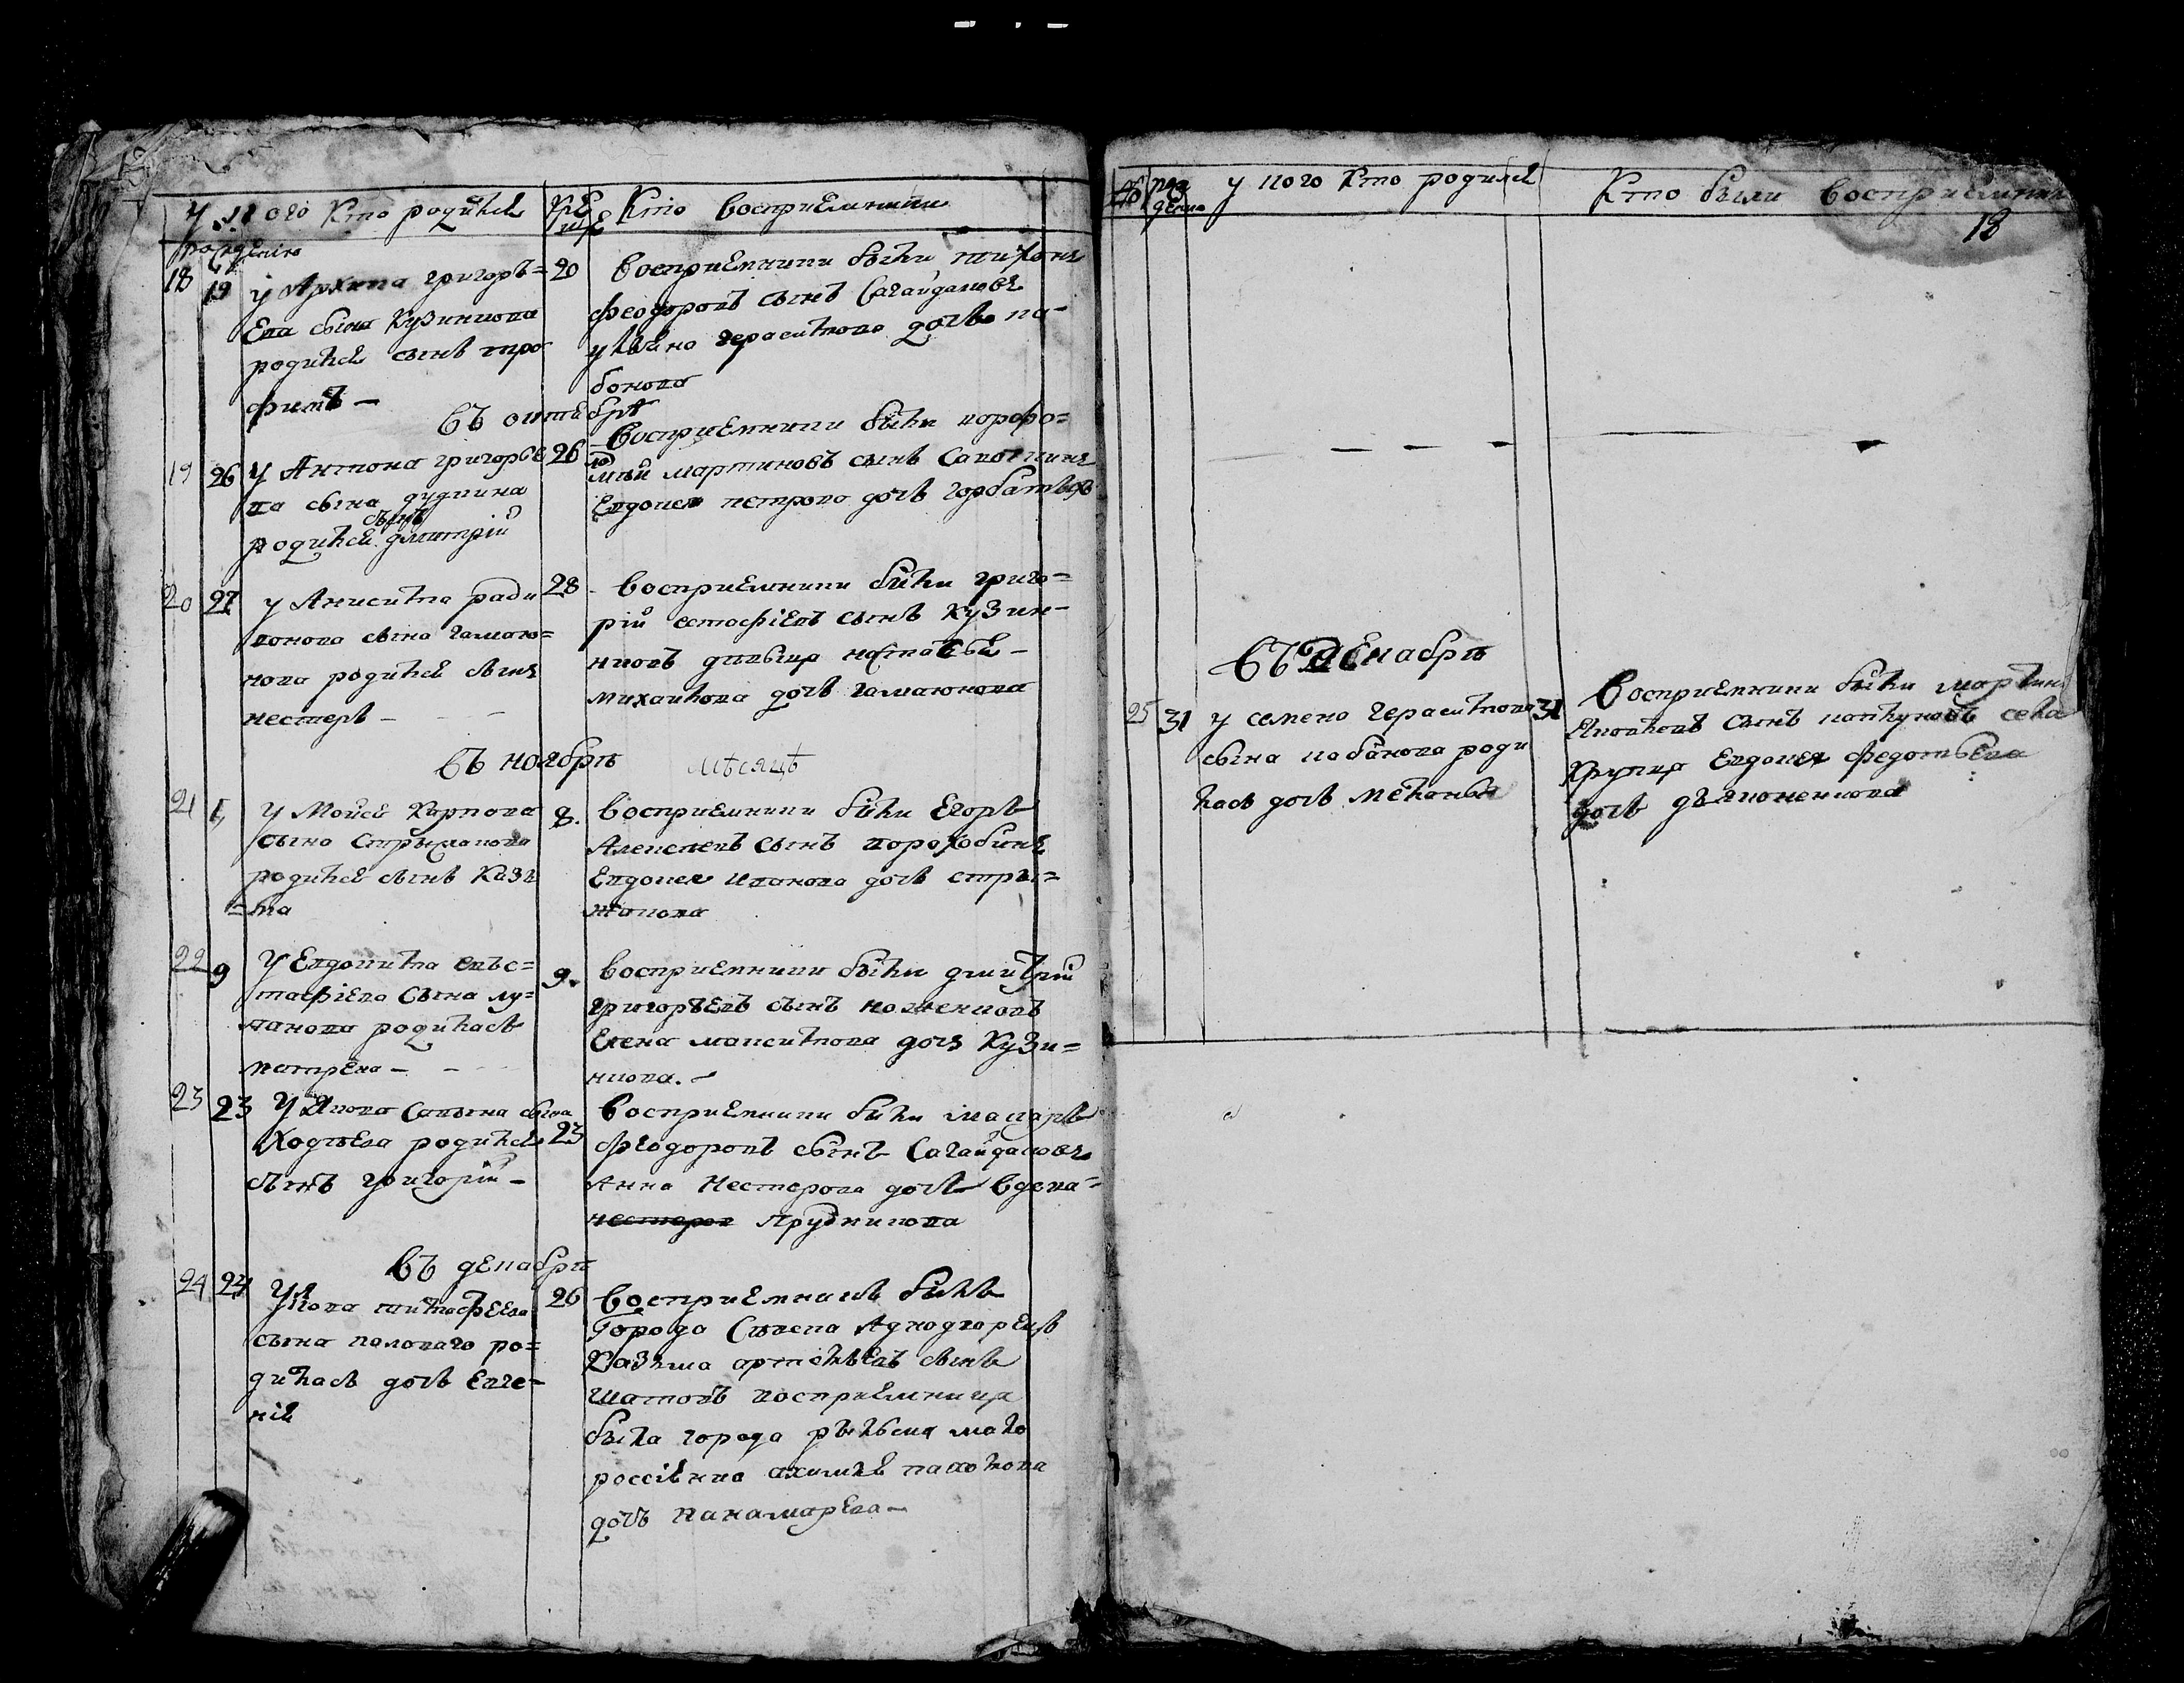 у кого кто родился
кре
ще
кто восприемники
рождение
18 19 у Архипа григорь=
ева сына Кузницова
родился сынъ тро
фимъ —
20 восприемники были тихонъ
феодоровъ сынъ Сагайдаковъ
герасимова дочь ка-
банова
въ октебрѣ
19 26 у Антона григорье
ва сына дудкина
сынъ
родился дмитрій
26 восприемники были
мартиновъ сынъ
Евдокея петрова дочь горбатыхъ
20 27 у Анисима ради
вонова сына гамаю=
нова родился сынъ
нестеръ —
28 восприемники были григо=
рій естафіевъ сынъ Кузни-
цовъ дѣвица настасья
михаилова дочь гамаюнова
въ ноябрѣ мѣсяцѣ
21 у Мойсе Карпова
сына Стрыжакова
родился сынъ Кзъ
=ма
8. восприемники были Егоръ
Алексеевъ сынъ ворохобинъ
Евдокея Иванова дочь стры=
жакова
22 9 у Евдокима евъс=
тафіева сына лу=
канова родилась
матрена —
9. восприемники были дмитрій
григорьевъ сынъ коженковъ
Елена максимова дочь Кузн=
цова. —
23 23 у Якова сына
Ходѣева родился
сынъ григорій —
23 восприемники были макаръ
феодоровъ сынъ Сагайдаковъ
Анна нестерова дочь вдова
нестеров прудникова
въ декабрѣ
24 24 у Якова тимофеева
сына полового ро=
дилась дочь Евге-
нія
26 восприемникъ былъ
города Сѣвска Аднодворецъ
Казъма сынъ
Шатовъ восприемница
была города рыльска мало
россіянка
дочь панамарева —
№
рож
дение
у кого кто родился
кто были восприемники
18
въ декабрѣ
25 31 у семена герасимова
сына кабанова роди
лась дочь мелания
31 восприемники были мартинъ
сынъ села
Крупца Евдокея федотьева
дочь